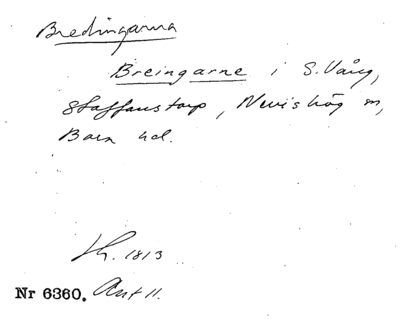 Bredingarna
Breingarne i S. Vång,
Staffanstorp, Nevishög sn,
Bara hd.
1813
Nr 6360. Ant 11.